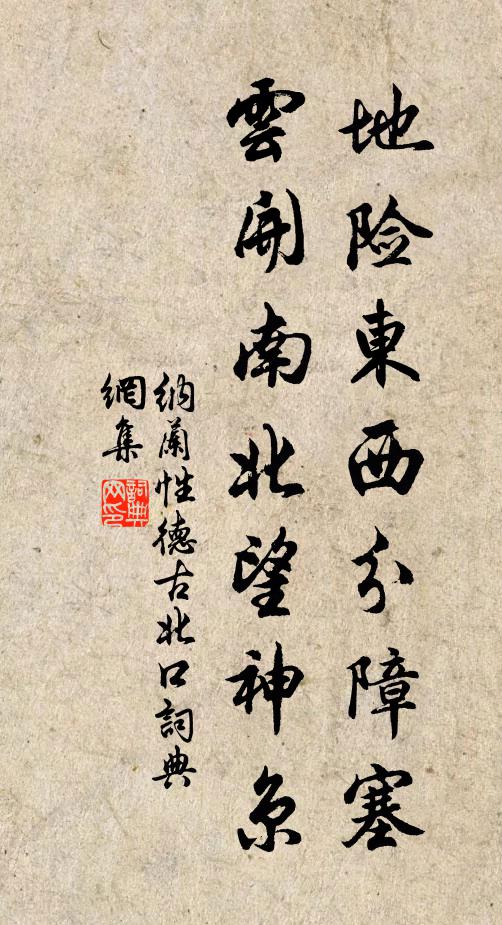 地险東西分障塞
雲開南北望神京
納蘭性德古北口詞典
網集
詞典
网印